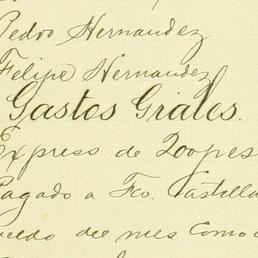 Pedro Hernandez
Felipe Hernandez
Gastos Grales.
Express de 200 pes
Pagado a Fco. Castella
sueldo del mes como